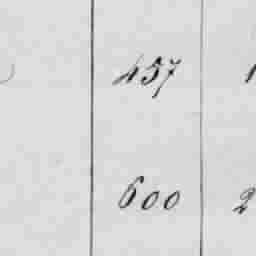 457 1
600 2